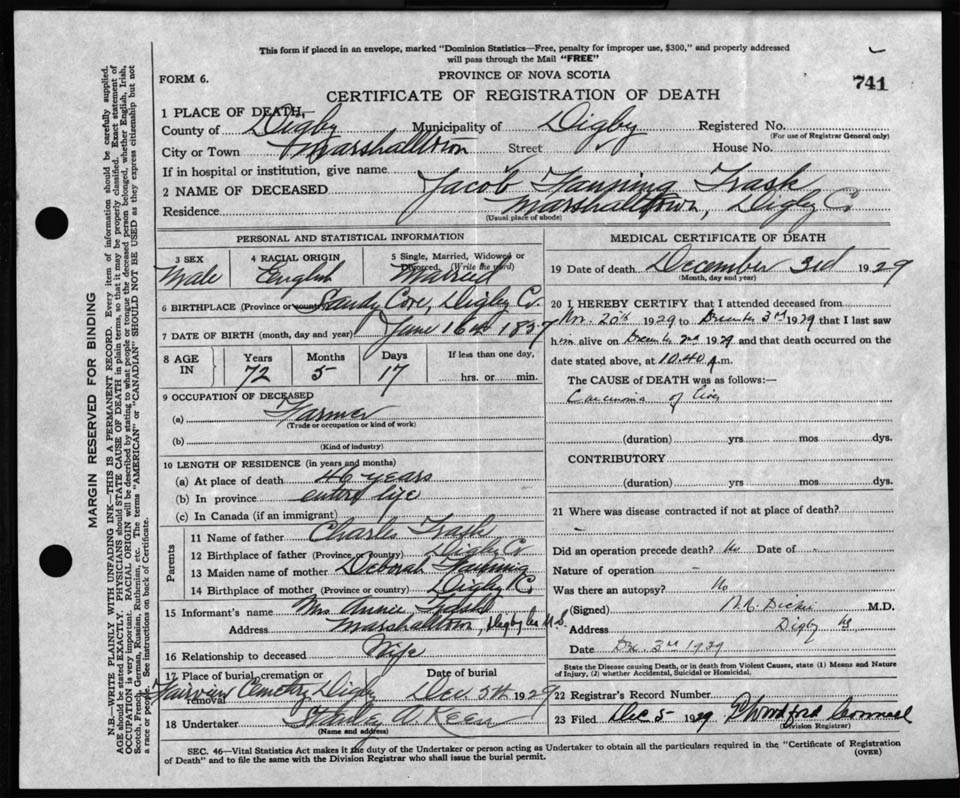 This form if placed in an envelope, marked "Dominion Statistics—Free, penalty for improper use, $300," and properly addressed
will pass through the Mail "FREE"
FORM 6.
PROVINCE OF NOVA SCOTIA
741
CERTIFICATE OF REGISTRATION OF DEATH
1 PLACE OF DEATH,
County of Digby Municipality of Digby Registered No.
(For use of Registrar General only)
City or Town Marshalltown Street House No.
If in hospital or institution, give name
2 NAME OF DECEASED Jacob Fanning Trask
Residence Marshalltown, Digby Co.
(Usual place of abode)
PERSONAL AND STATISTICAL INFORMATION
3 SEX 4 RACIAL ORIGIN 5 Single, Married, Widowed or
Divorced. (Write the word)
Male English Married
6 BIRTHPLACE (Province or country) Sandy Cove, Digby Co.
7 DATE OF BIRTH (month, day and year) June 16th 1857
8 AGE IN Years Months Days If less than one day,
72 5 17 hrs. or min.
9 OCCUPATION OF DECEASED
(a) Farmer
(Trade or occupation or kind of work)
(b)
(Kind of industry)
10 LENGTH OF RESIDENCE (in years and months)
(a) At place of death 46 years
(b) In province entire life
(c) In Canada (if an immigrant)
Parents
11 Name of father Charles Trask
12 Birthplace of father (Province or country) Digby Co
13 Maiden name of mother Deborah Fanning
14 Birthplace of mother (Province or country) Digby Co.
15 Informant's name Mrs Annie Trask
Address Marshalltown, Digby Co N.S.
16 Relationship to deceased Wife
17 Place of burial, cremation or removal Date of burial
Fairview Cemetery Digby Dec. 5th 1929
18 Undertaker Stanley A. Keen
(Name and address)
MEDICAL CERTIFICATE OF DEATH
19 Date of death December 3rd 1929
(Month, day and year)
20 I HEREBY CERTIFY that I attended deceased from
Nov. 20th 1929 to December 3rd 1929 that I last saw
him alive on December 2nd 1929 and that death occurred on the
date stated above, at 10.40 .m.
The CAUSE OF DEATH was as follows:—
Carcinoma of liver
(duration) yrs mos dys.
CONTRIBUTORY
(duration) yrs. mos dys.
21 Where was disease contracted if not at place of death?
Did an operation precede death? No Date of
Nature of operation –
Was there an autopsy? No
(Signed) Dickie M.D.
Address Digby NS
Date Dec 3rd 1929
State the Disease causing Death, or in death from Violent Causes, state (1) Means and Nature
of Injury, (2) whether Accidental, Suicidal or Homicidal.
22 Registrar's Record Number
23 Filed Dec 5– 1929
(Division Registrar)
SEC. 46—Vital Statistics Act makes it the duty of the Undertaker or person acting as Undertaker to obtain all the particulars required in the "Certificate of Registration
of Death" and to file the same with the Division Registrar who shall issue the burial permit. (OVER)
MARGIN RESERVED FOR BINDING
N.B.—WRITE PLAINLY WITH UNFADING INK—THIS IS A PERMANENT RECORD. Every item of information should be carefully supplied.
AGE should be stated EXACTLY. PHYSICIANS should STATE CAUSE OF DEATH in plain terms, so that it may be properly classified. Exact statement of
OCCUPATION is very important. RACIAL ORIGIN will be described by stating to what people or tongue the deceased person belonged, whether English, Irish,
Scotch, French, German, Russian, Ruthenian, etc. The terms "AMERICAN" or "CANADIAN" SHOULD NOT BE USED as they express citizenship but not
a race or people. See instructions on back of Certificate.